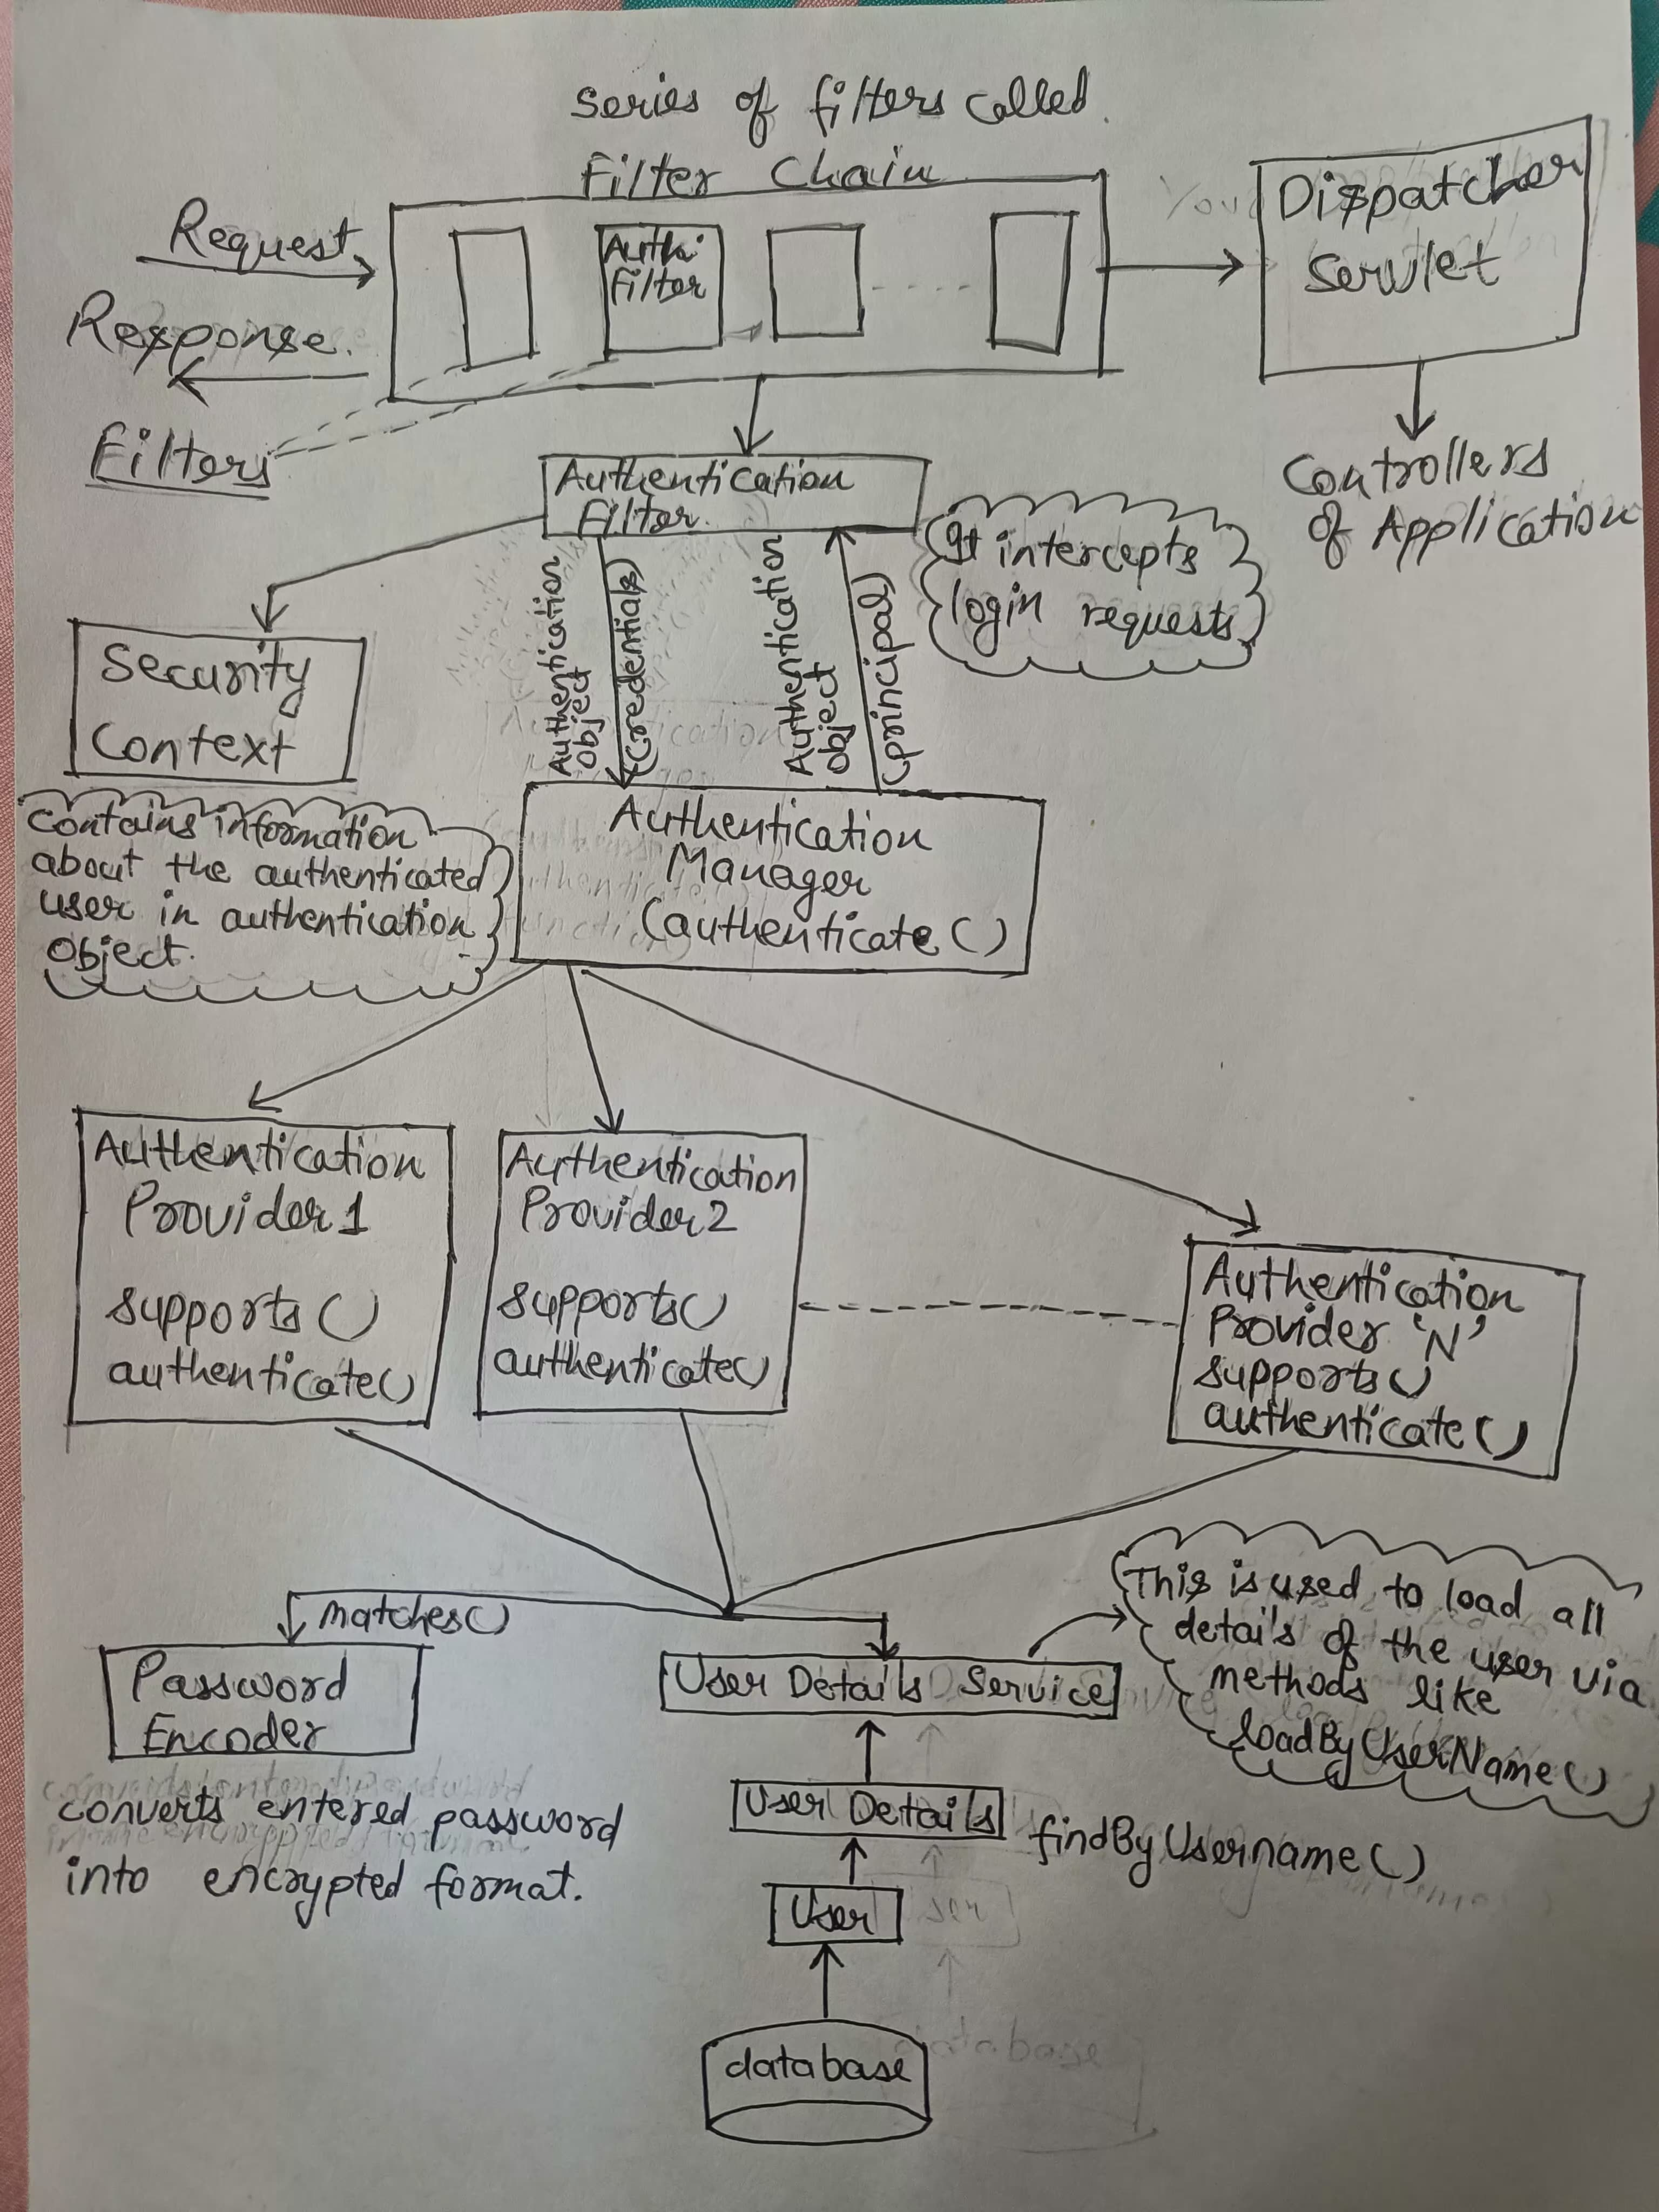 Series of filters called
Filter Chain
Request
Response.
Filters
Authn.
Filter
Dispatcher
Servlet
Controllers
of Application
Authentication
Filter.
It intercepts
login requests
Authentication
Object
(Credentials)
Authentication
Object
(principal)
Security
Context
Contains information
about the authenticated
user in authentication
object.
Authentication
Manager
(authenticate()
Authentication
Provider 1
supports()
authenticate()
Authentication
Provider 2
supports()
authenticate()
Authentication
Provider 'N'
supports()
authenticate()
matches()
Password
Encoder
converts entered password
into encrypted format.
User Details Service
This is used to load all
details of the user via
methods like
loadByUserName()
User Details
findByUsername()
User
database